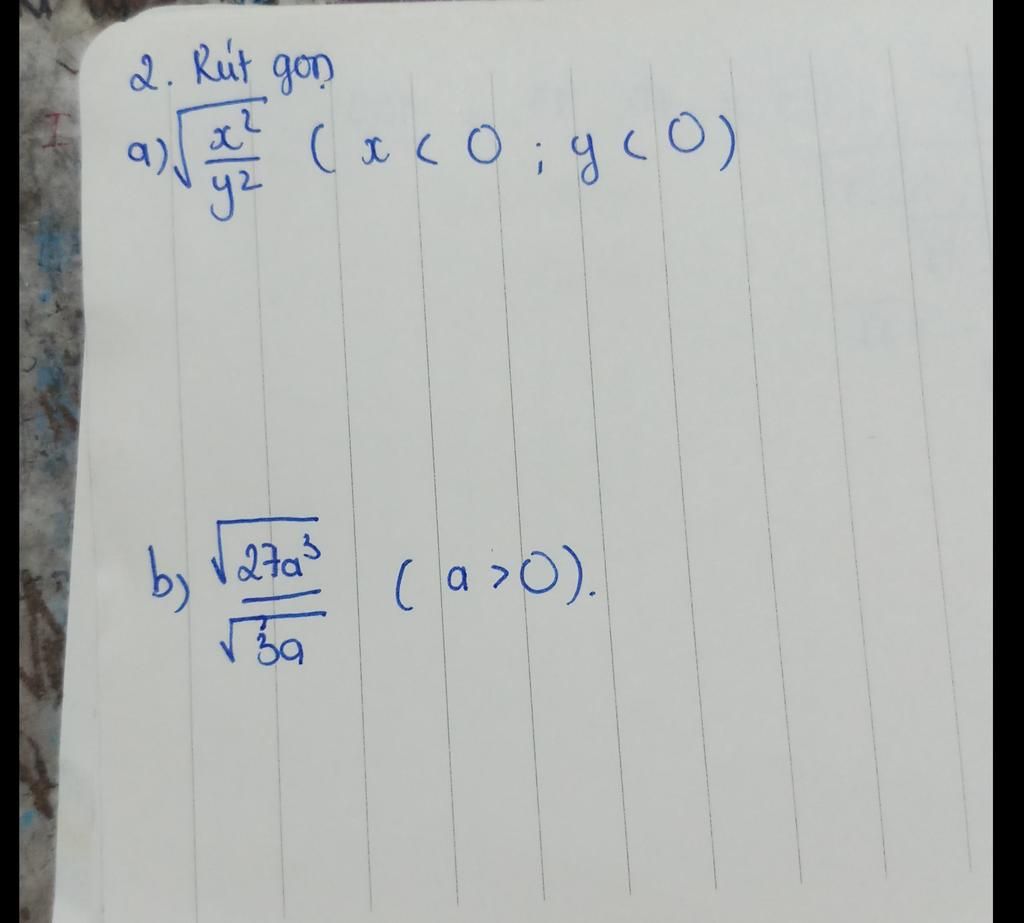 2. Rút gọn
a) √(x²/y²) ( x < 0 ; y < 0 )
b) √(27a³)/√(3a) ( a > 0 ).